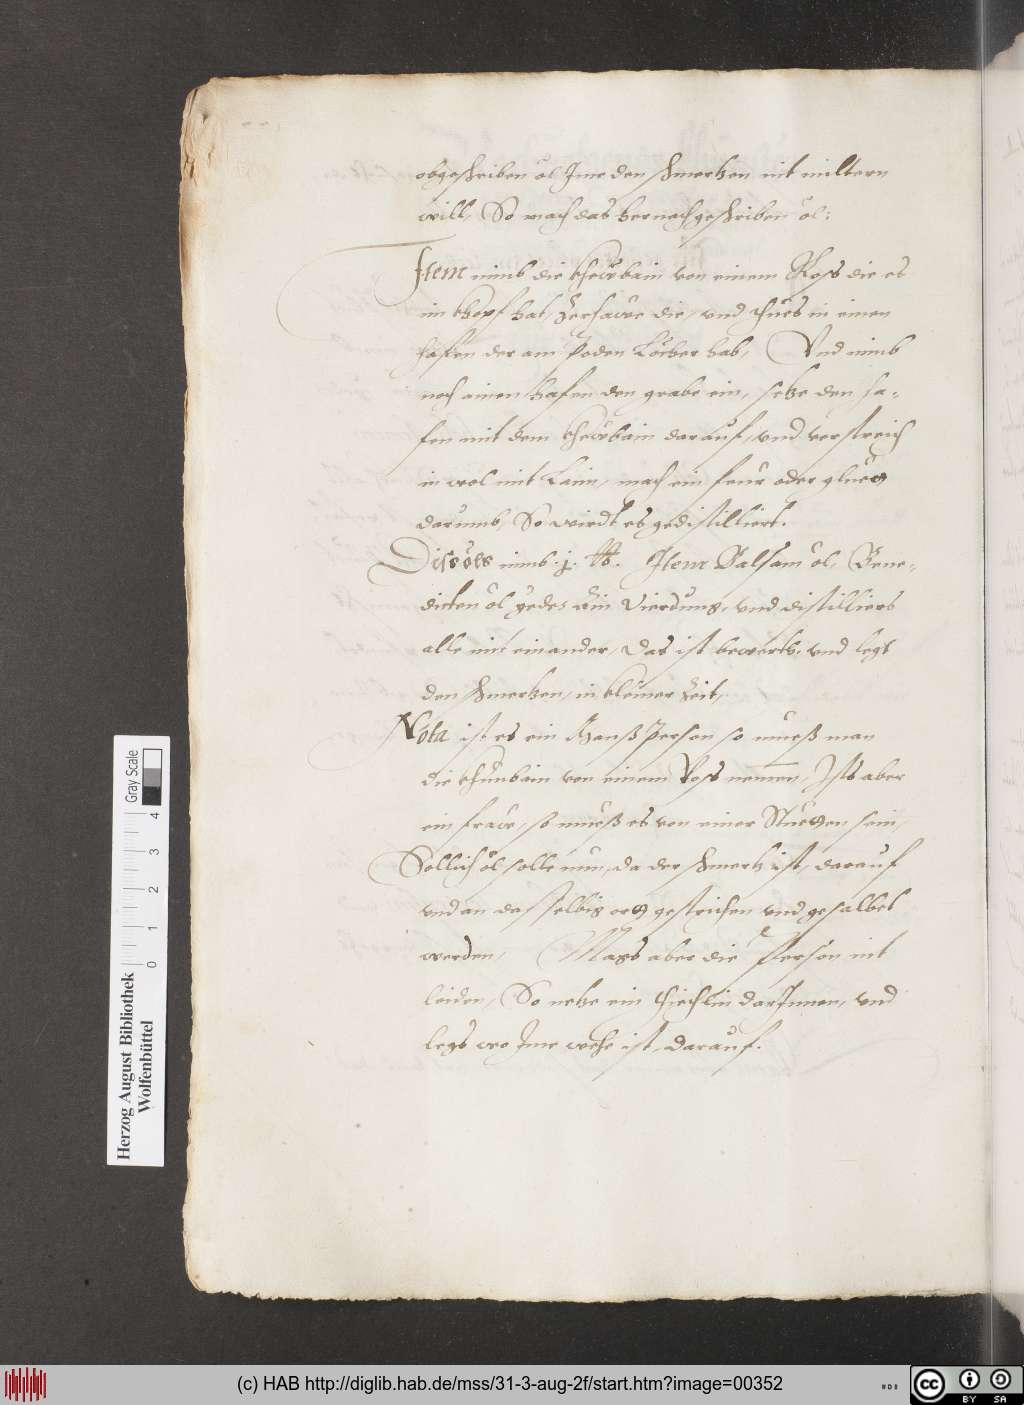 obgeschriben öl Jme den schmertzen nit miltern
will, So mach das hernachgeschriben öl:
Item nimb die khewbain von einem Ross die es
im khopf hat, zerhawe die, und thues in einen
hafen der am Poden Löcher hab, Vnd nimb
noch ainen hafen den grabe ein, setze den ha-
fen mit dem khewbain darauf, und verstreich
in wol mit Laim, mach ein feur oder gluet
darumb, So wirdt es gedistilliert.
Dises öls nimb .j. lb. Item Balsam öl, Bene-
dicten öl yedes ein Vierdung, und distilliers
alle mit einander, Das ist bewerth, und legt
den schmertzen, in kleiner zeit,
Nota ist es ein Manß Person so mueß man
die khünbain von einem Ross nemmen, Ists aber
ein fraw, so mueß es von einer Stueten sein,
Sollich öl solle nun, da der schmertz ist, darauf
und an dasselbig ort gestrichen und gesalbet
werden, Mags aber die Person nit
leiden, So netze ein thiechlin darJnnen, und
legs wo Jme wehe ist, darauf.
Herzog August Bibliothek
Wolfenbüttel
0 1 2 3 4
Gray Scale
(c) HAB http://diglib.hab.de/mss/31-3-aug-2f/start.htm?image=00352
cc BY SA